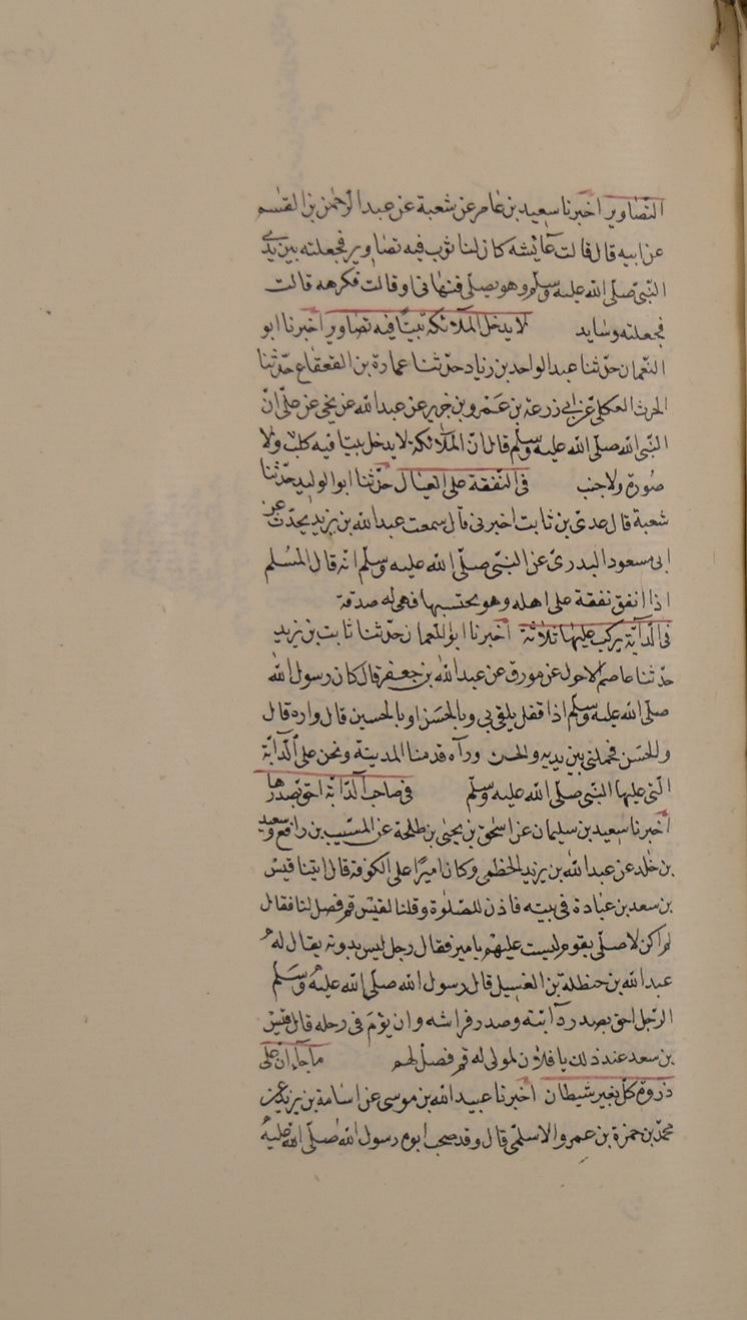 التصاوير اخبرنا سعيد بن عامر عن شعبة عن عبد الرحمن بن القسم
عن ابيه قال قالت عائشه كان لنا ثوب فيه تصاوير فجعلته بين يدي
النبي صلى الله عليه وسلم وهو يصلي فنهاني او قالت فكرهه قالت
فجعلته وسايد لا يدخل الملائكة بيتا فيه تصاوير اخبرنا ابو
النعمان حدثنا عبد الواحد بن زياد حدثنا عمارة بن القعقاع حدثنا
الحرث العكلي عن ابي زرعة بن عمرو بن جرير عن عبد الله عن يحيى عن علي ان
النبي الله صلى الله عليه وسلم قال ان الملائكة لا يدخل بيتا فيه كلب ولا
صورة ولا جنب في النفقة على العيال حدثنا ابو الوليد حدثنا
شعبة قال عدي بن ثابت اخبرني قال سمعت عبد الله بن يزيد يحدث عن
ابي مسعود البدري عن النبي صلى الله عليه وسلم انه قال المسلم
اذا انفق نفقة على اهله وهو يحتسبها فهي له صدقة
في الدابة يركب عليها ثلاثة اخبرنا ابو النعمان حدثنا ثابت بن يزيد
حدثنا عاصم الاحول عن مورق عن عبد الله بن جعفر قال كان رسول الله
صلى الله عليه وسلم اذا قفل يلقى بي وبالحسن او بالحسين قال واره قال
وللحسن فحملني بين يديه والحسن ورآه قدمنا المدينة ونحن على الدابة
التي عليها النبي صلى الله عليه وسلم في صاحب الدابة احق بصدرها
اخبرنا سعيد بن سليمان عن اسحق بن يحيى بن طلحة عن المسيب بن رافع وسعيد
بن خلد عن عبد الله بن يزيد الخطمي وكان اميرا على الكوفة قال اتينا قيس
بن سعد بن عبادة في بيته فاذن للصلوة وقلنا لقيس قم فصل لنا فقال
لم اكن لاصلي بقوم ليست عليهم بامير فقال رجل ليس بدونه يقال له
عبد الله بن حنظلة بن الغسيل قال رسول الله صلى الله عليه وسلم
الرجل احق بصدر دابته وصدر فراشه وان يؤم في رحله قال قيس
بن سعد عند ذلك يا فلان لمولى له قم فصل لهم ما جاء ان على
ذروة كل بعير شيطان اخبرنا عبيد الله بن موسى عن اسامة بن يزيد عن
محمد بن حمزة بن عمرو الاسلمي قال وقد صحب ابوه رسول الله صلى الله عليه